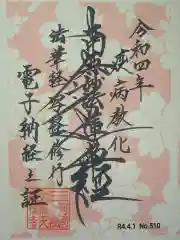 令和四年
疫病教化
南無妙法蓮華経
法華経写経修行
電子納経之証
R4.4.1 No.510